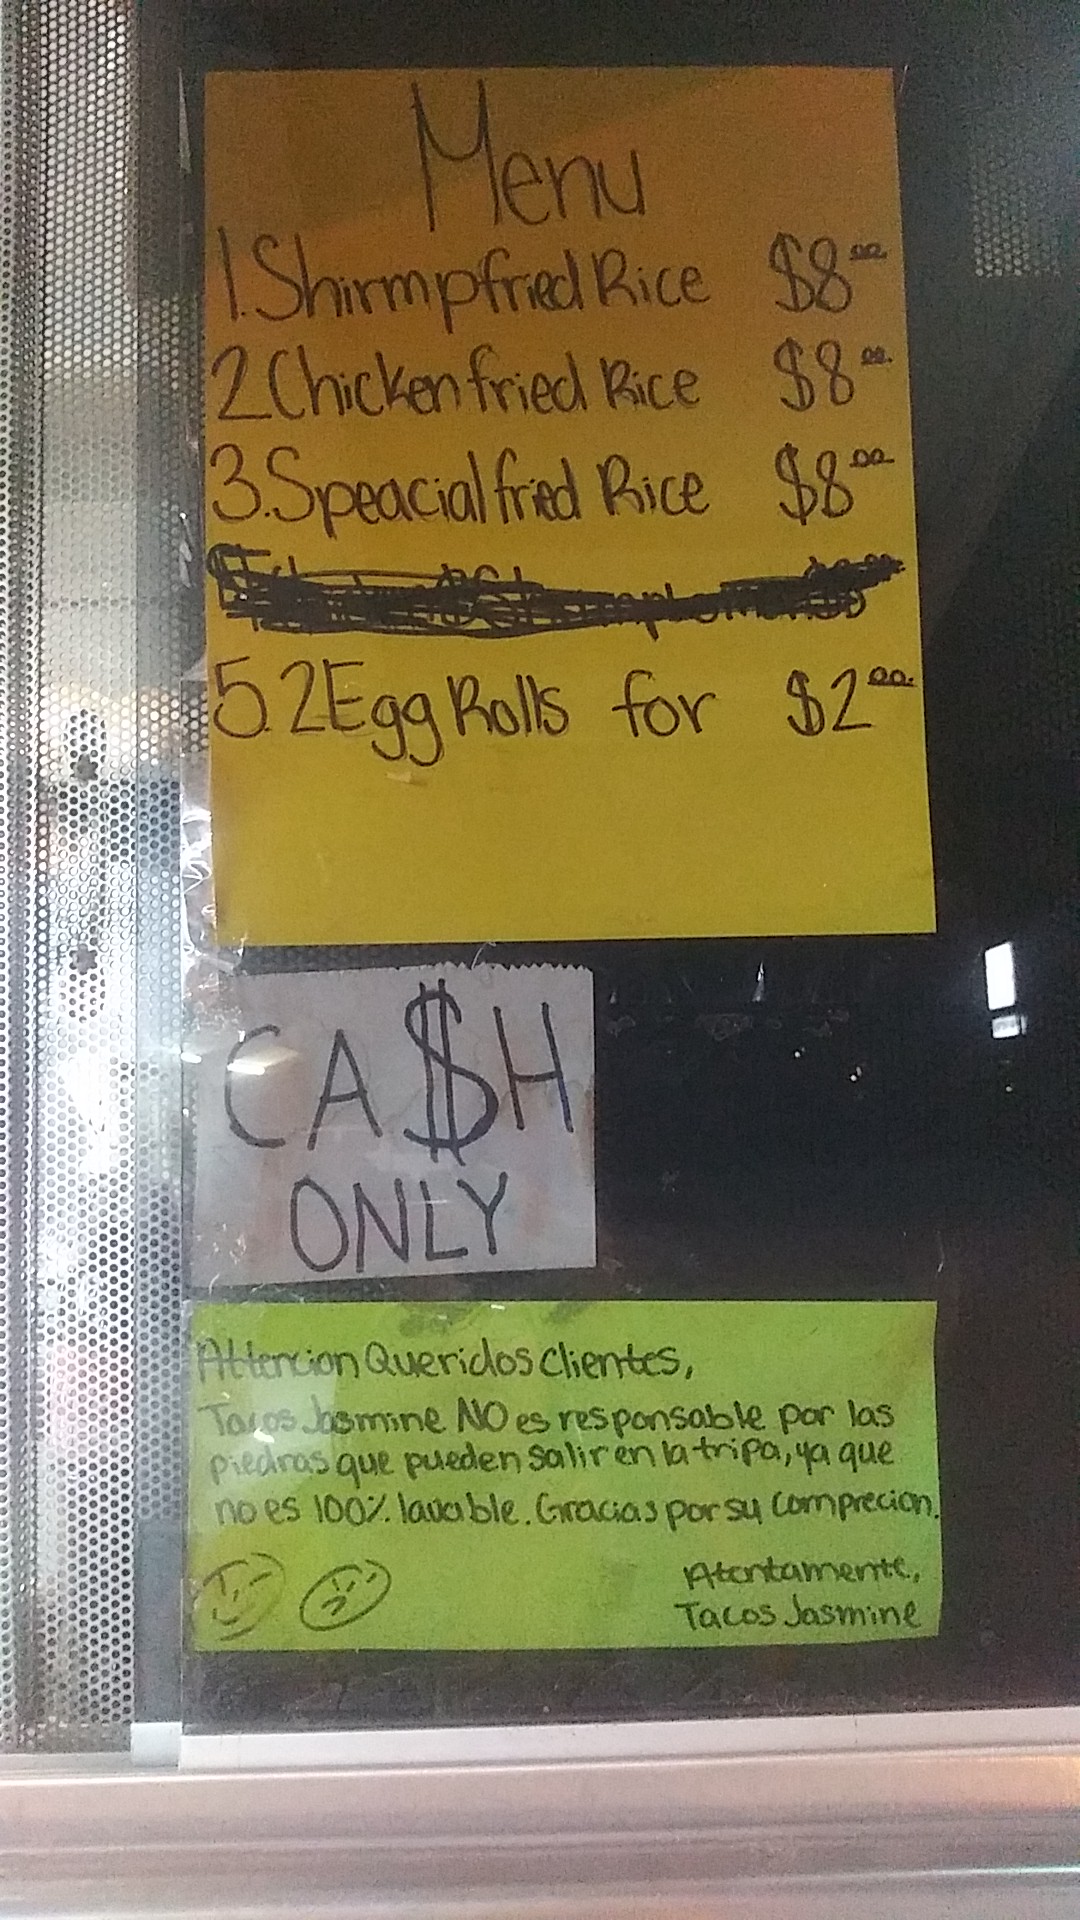 Menu
1. Shirmp fried Rice $8.00
2 Chicken fried Rice $8.00
3. Speacial fried Rice $8.00
5. 2 Egg Rolls for $2.00
CA$H
ONLY
Attencion Queridos clientes,
Tacos Jasmine NO es responsable por las
piedras que pueden salir en la tripa, ya que
no es 100% lavable. Gracias por su comprecion.
Atentamente,
Tacos Jasmine